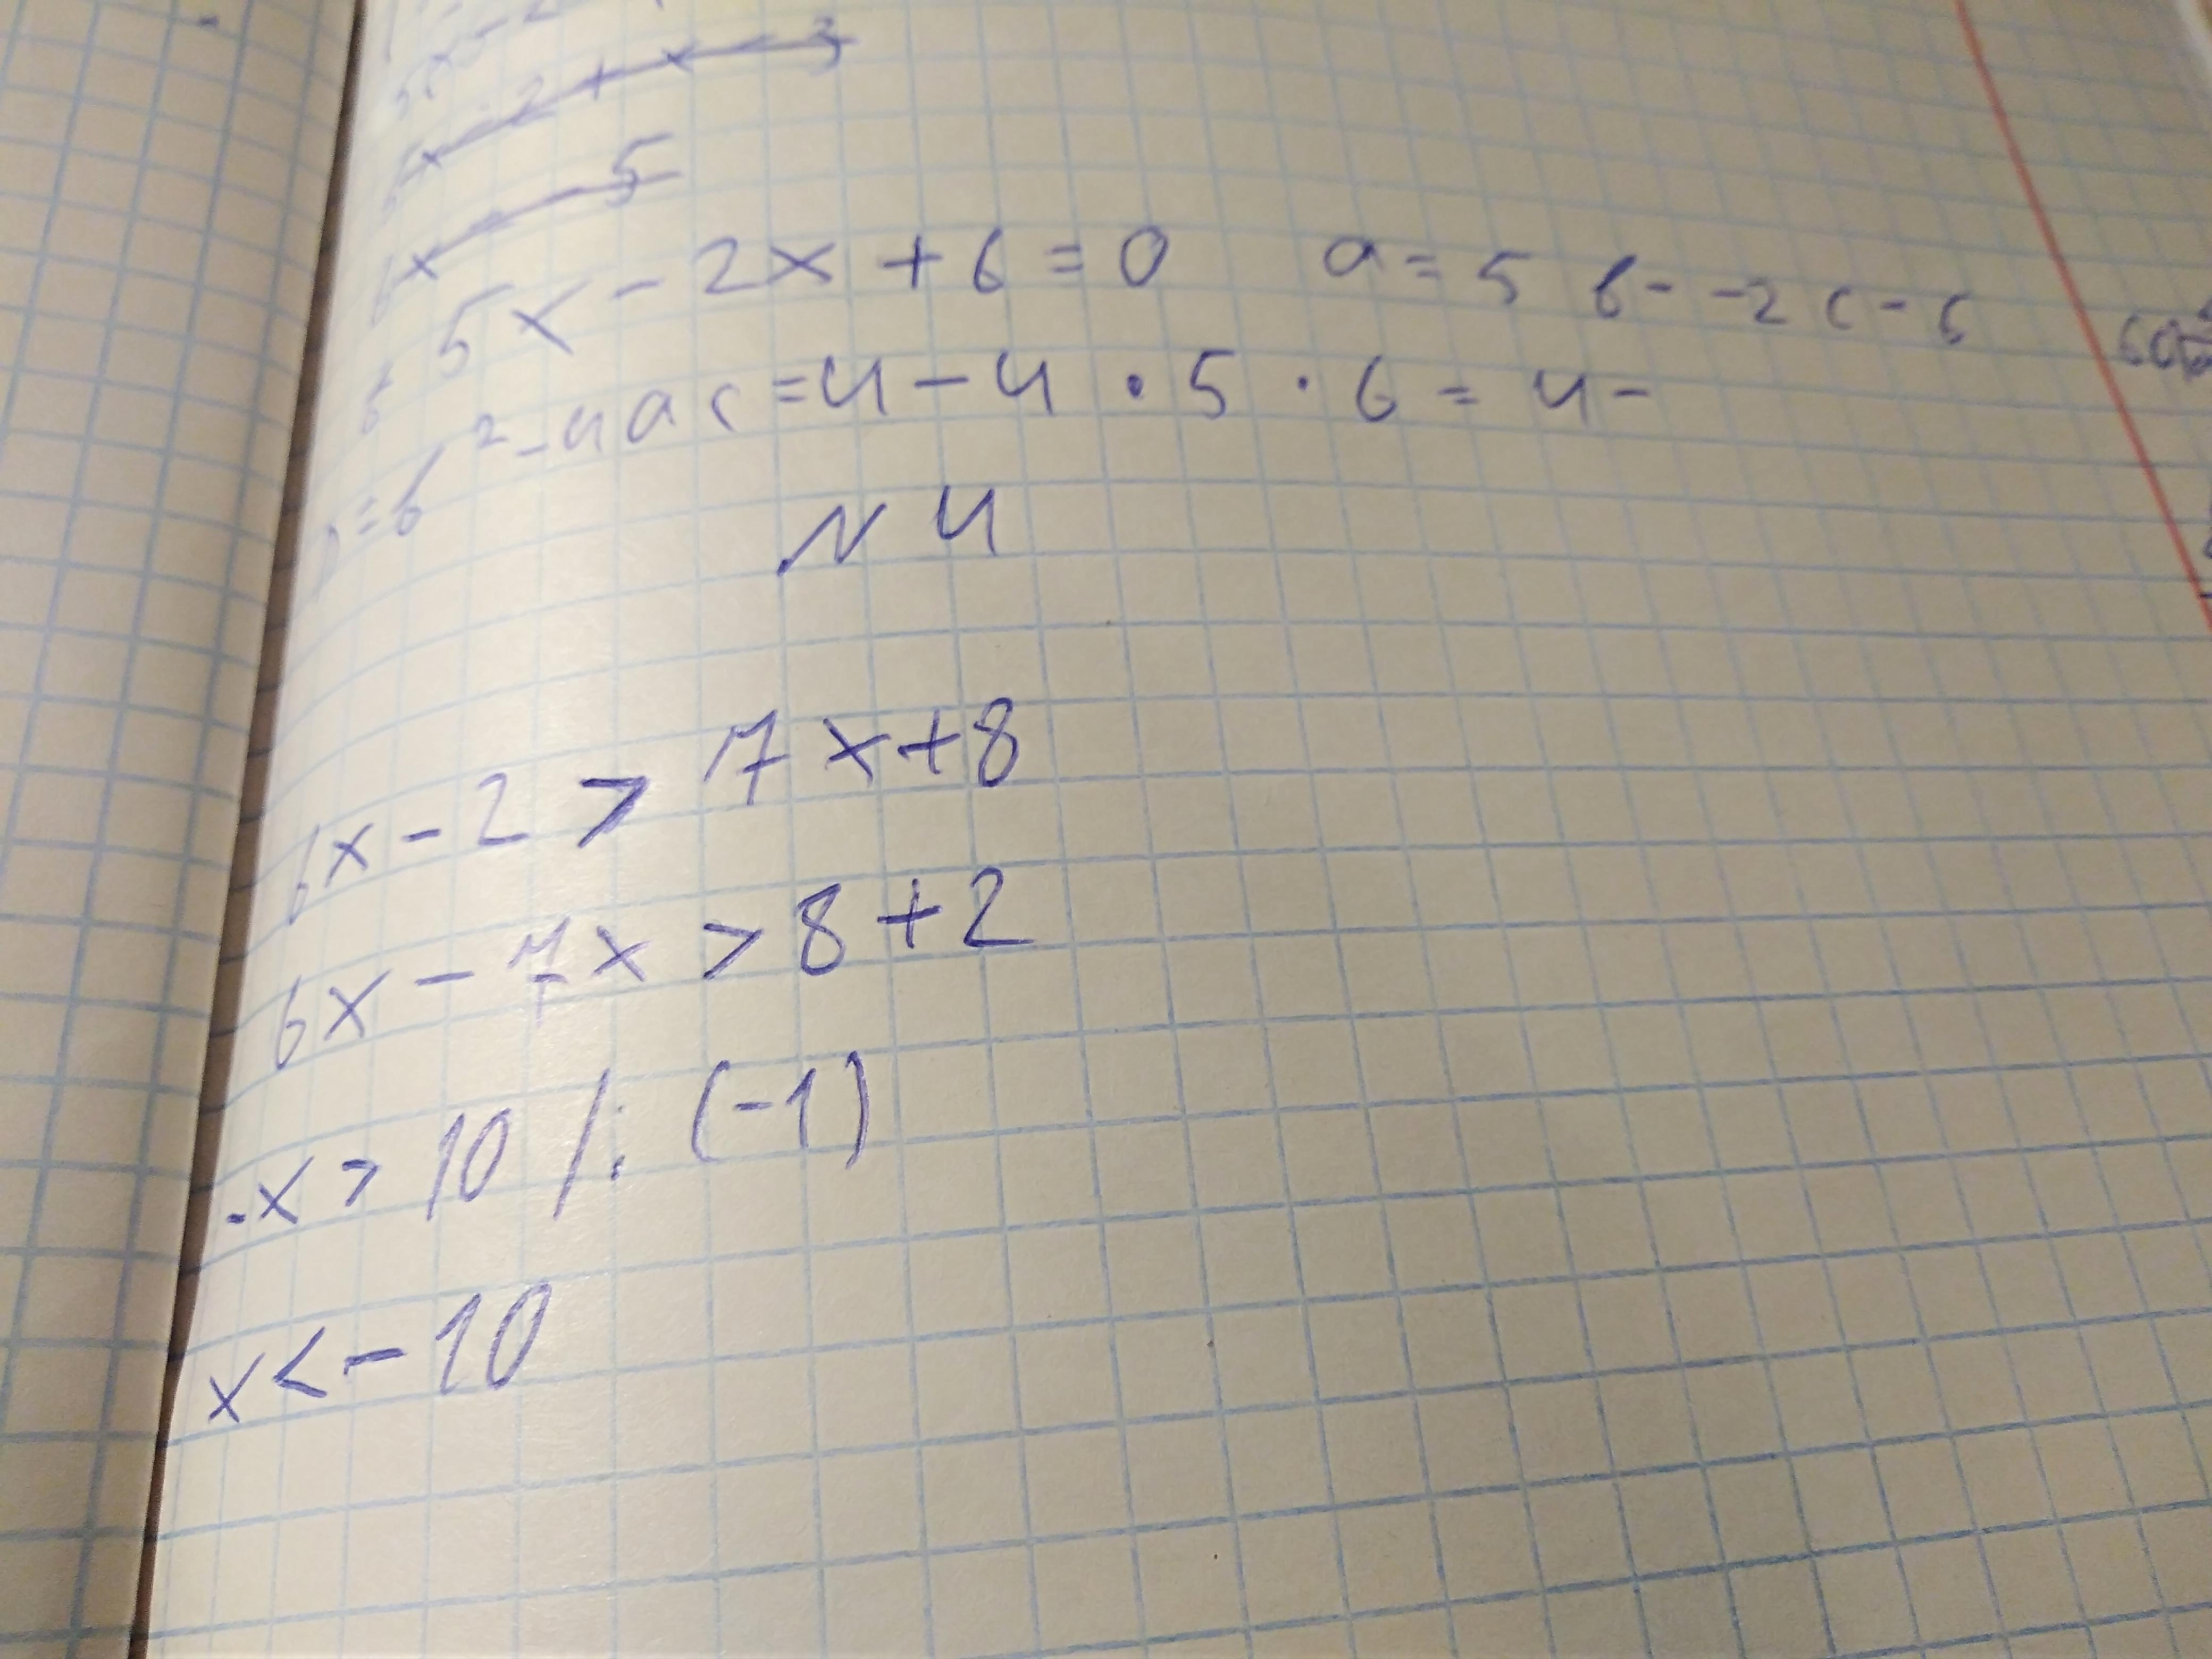 5x - 2x + 6 = 0 a = 5 в - -2 c - 6
D = b² - 4ac = 4 - 4 · 5 · 6 = 4 -
N 4
6x - 2 > 7x + 8
6x - 7x > 8 + 2
-x > 10 /: (-1)
x < - 10